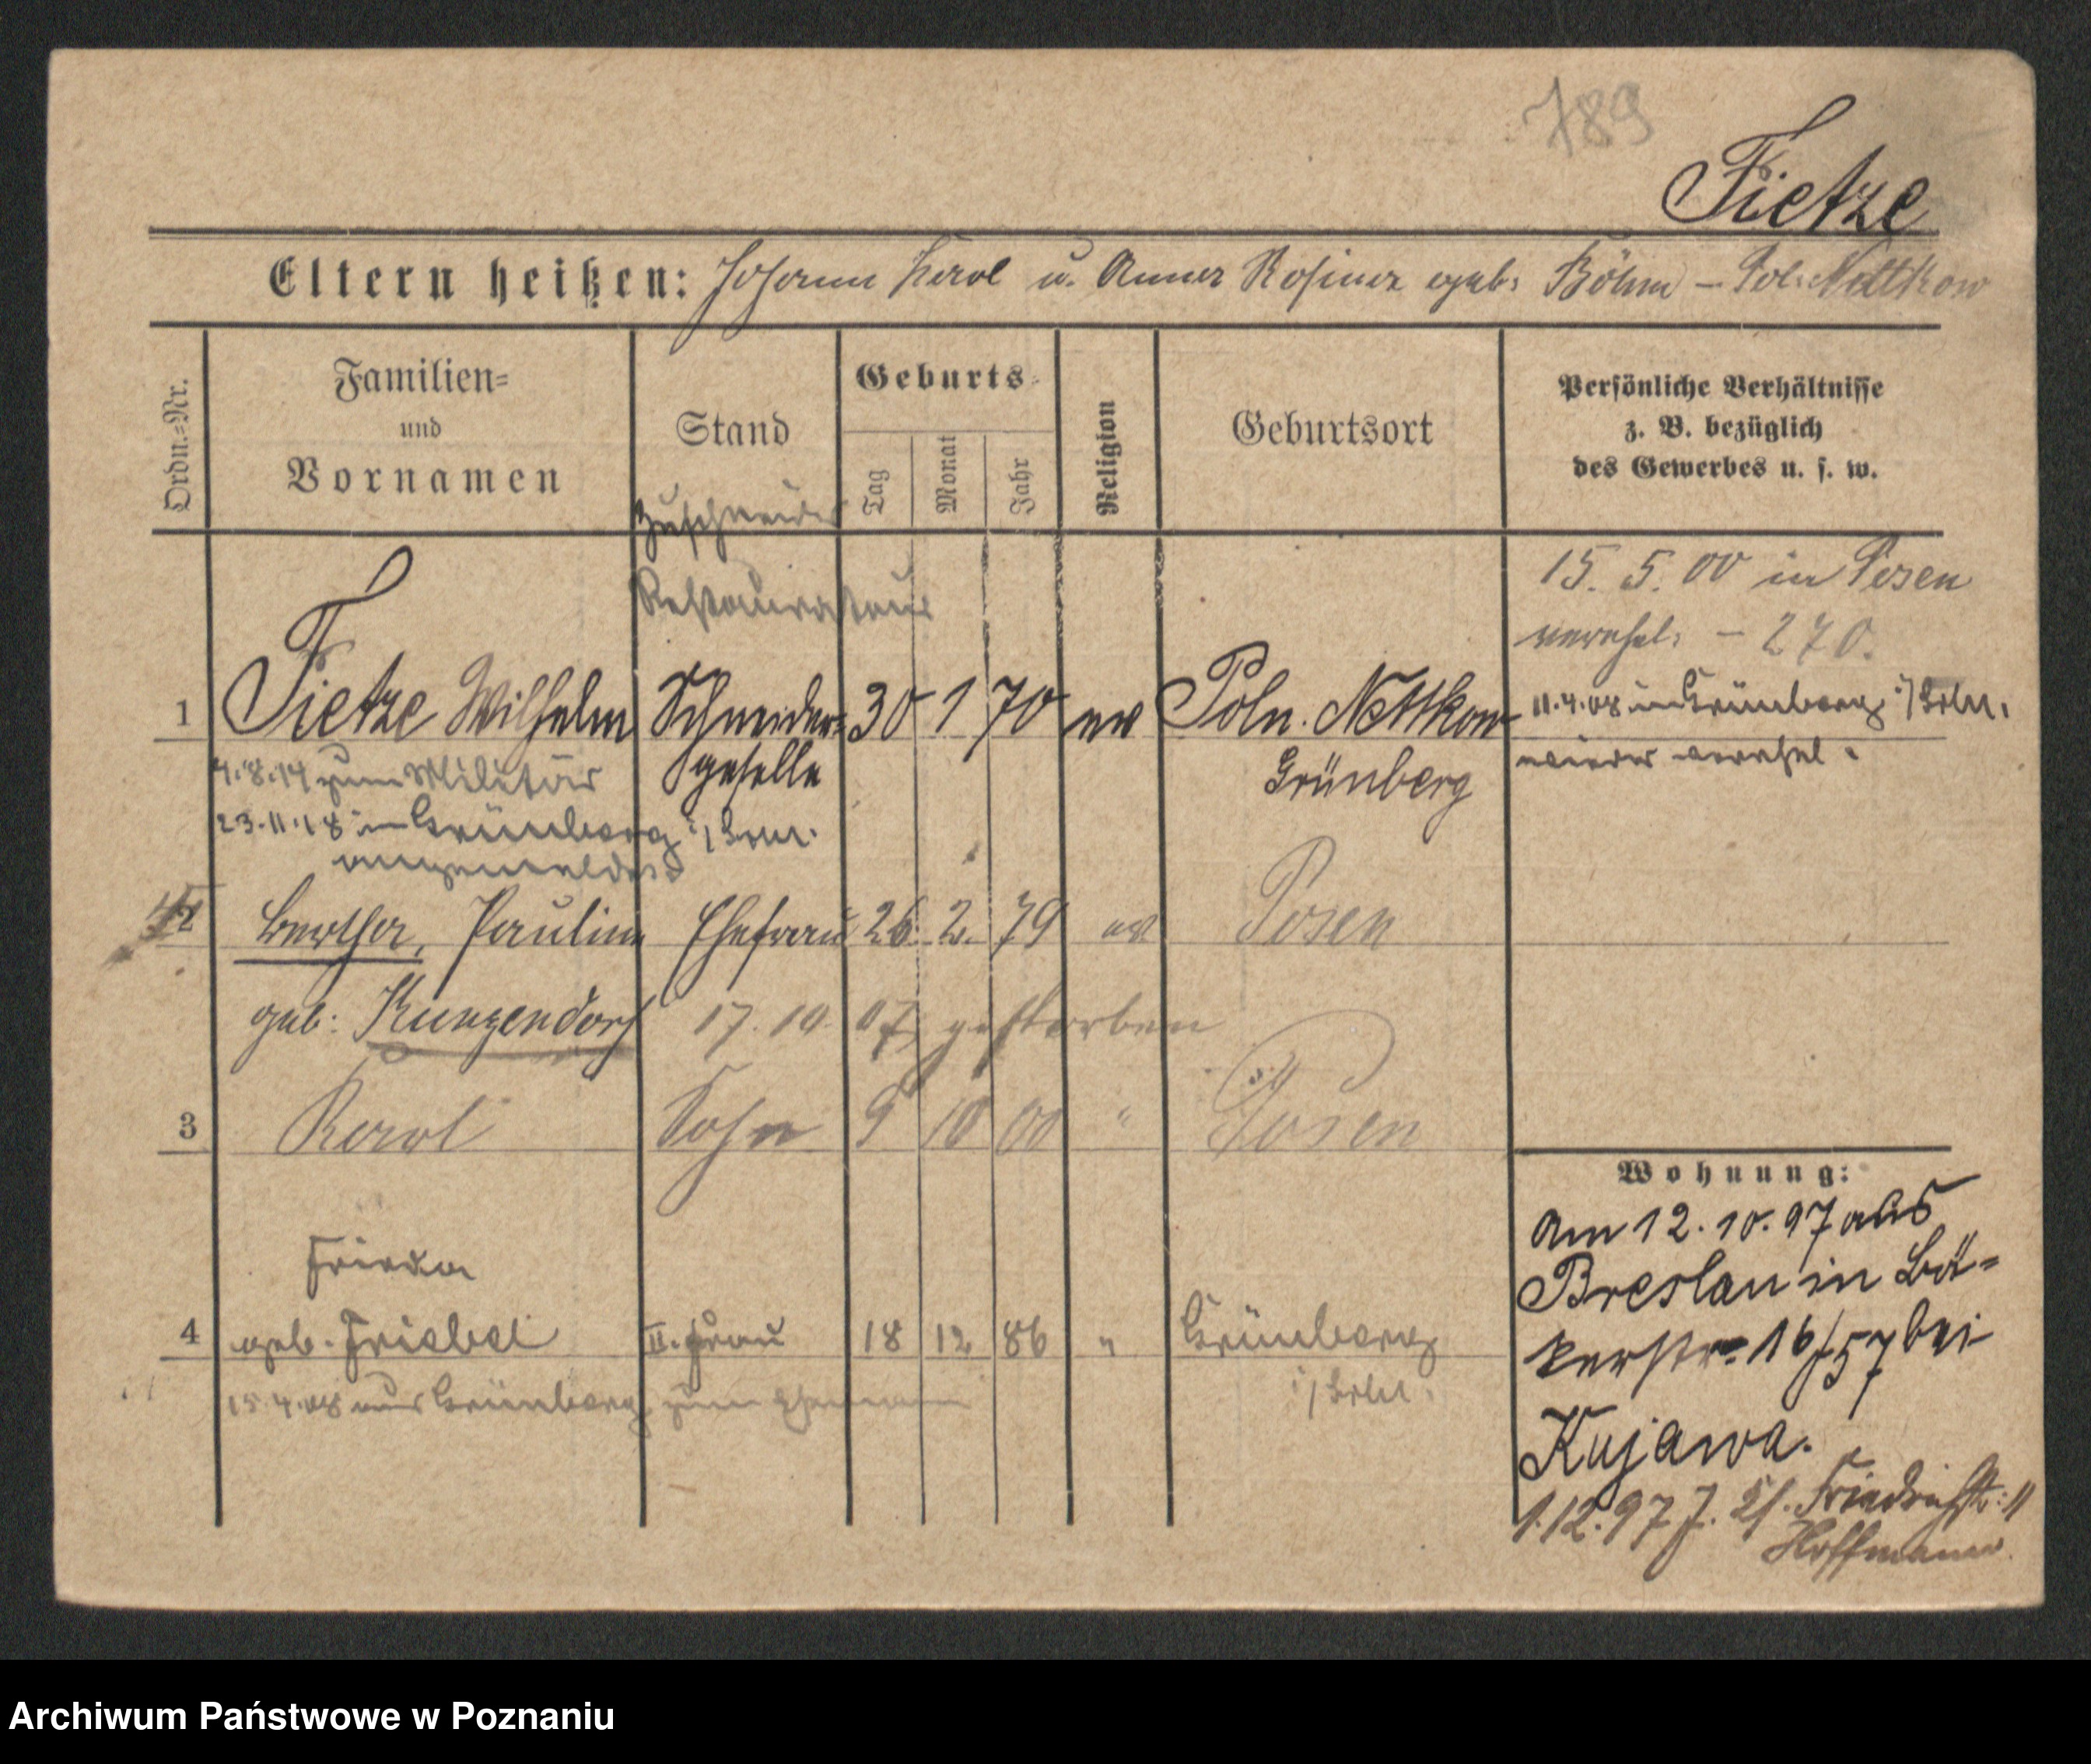 789
Tietze
Eltern heißen: Johann Karl u. Anna Rosina geb: Böhm – Pol: Nettkow
Ordn.-Nr.
Familien-
und
Vornamen
Stand
Geburts-
Tag
Monat
Jahr
Religion
Geburtsort
Persönliche Verhältnisse
z. B. bezüglich
des Gewerbes u. s. w.
Zuschneider
Restaurateur
15. 5. 00 in Posen
verehel: – 270.
1 Tietze Wilhelm Schneider- 30 1 70 ev Poln. Nettkow
geselle Grünberg
11.4.08 in Grünberg i/Schl.
wieder verehel.
4.8.14 zum Militär
23.11.18 in Grünberg i/Schl.
angemeldet
2 Bertha, Pauline Ehefrau 26. 2. 79 ev Posen
geb: Kunzendorf 17. 10. 07 gestorben
3 Karl Sohn 9 10 00 " Posen
Frieda
4 geb. Friebel II. Frau 18 12 86 " Grünberg
i/Schl.
15.4.08 aus Grünberg zum Ehemann
Wohnung:
Am 12. 10. 97 aus
Breslau in Bä-
kerstr. 16/57 bei
Kujawa.
1.12.97 J. Friedrichstr: 11
Hoffmann